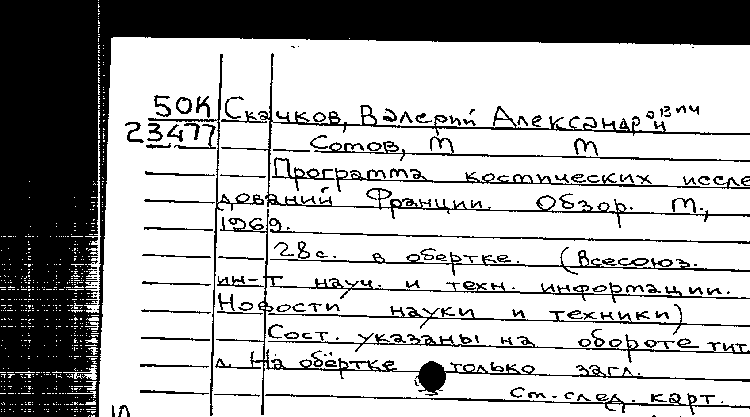 50К Скачков, Валерий Александрович
23477
Сотов, М М
Программа космических иссле
дований Франции. Обзор. М.,
1969.
28с. в обертке. (Всесоюз.
ин-т науч. и техн. информации.
Новости науки и техники)
Сост. указаны на обороте тит.
л. На обёртке только загл.
См. след. карт.